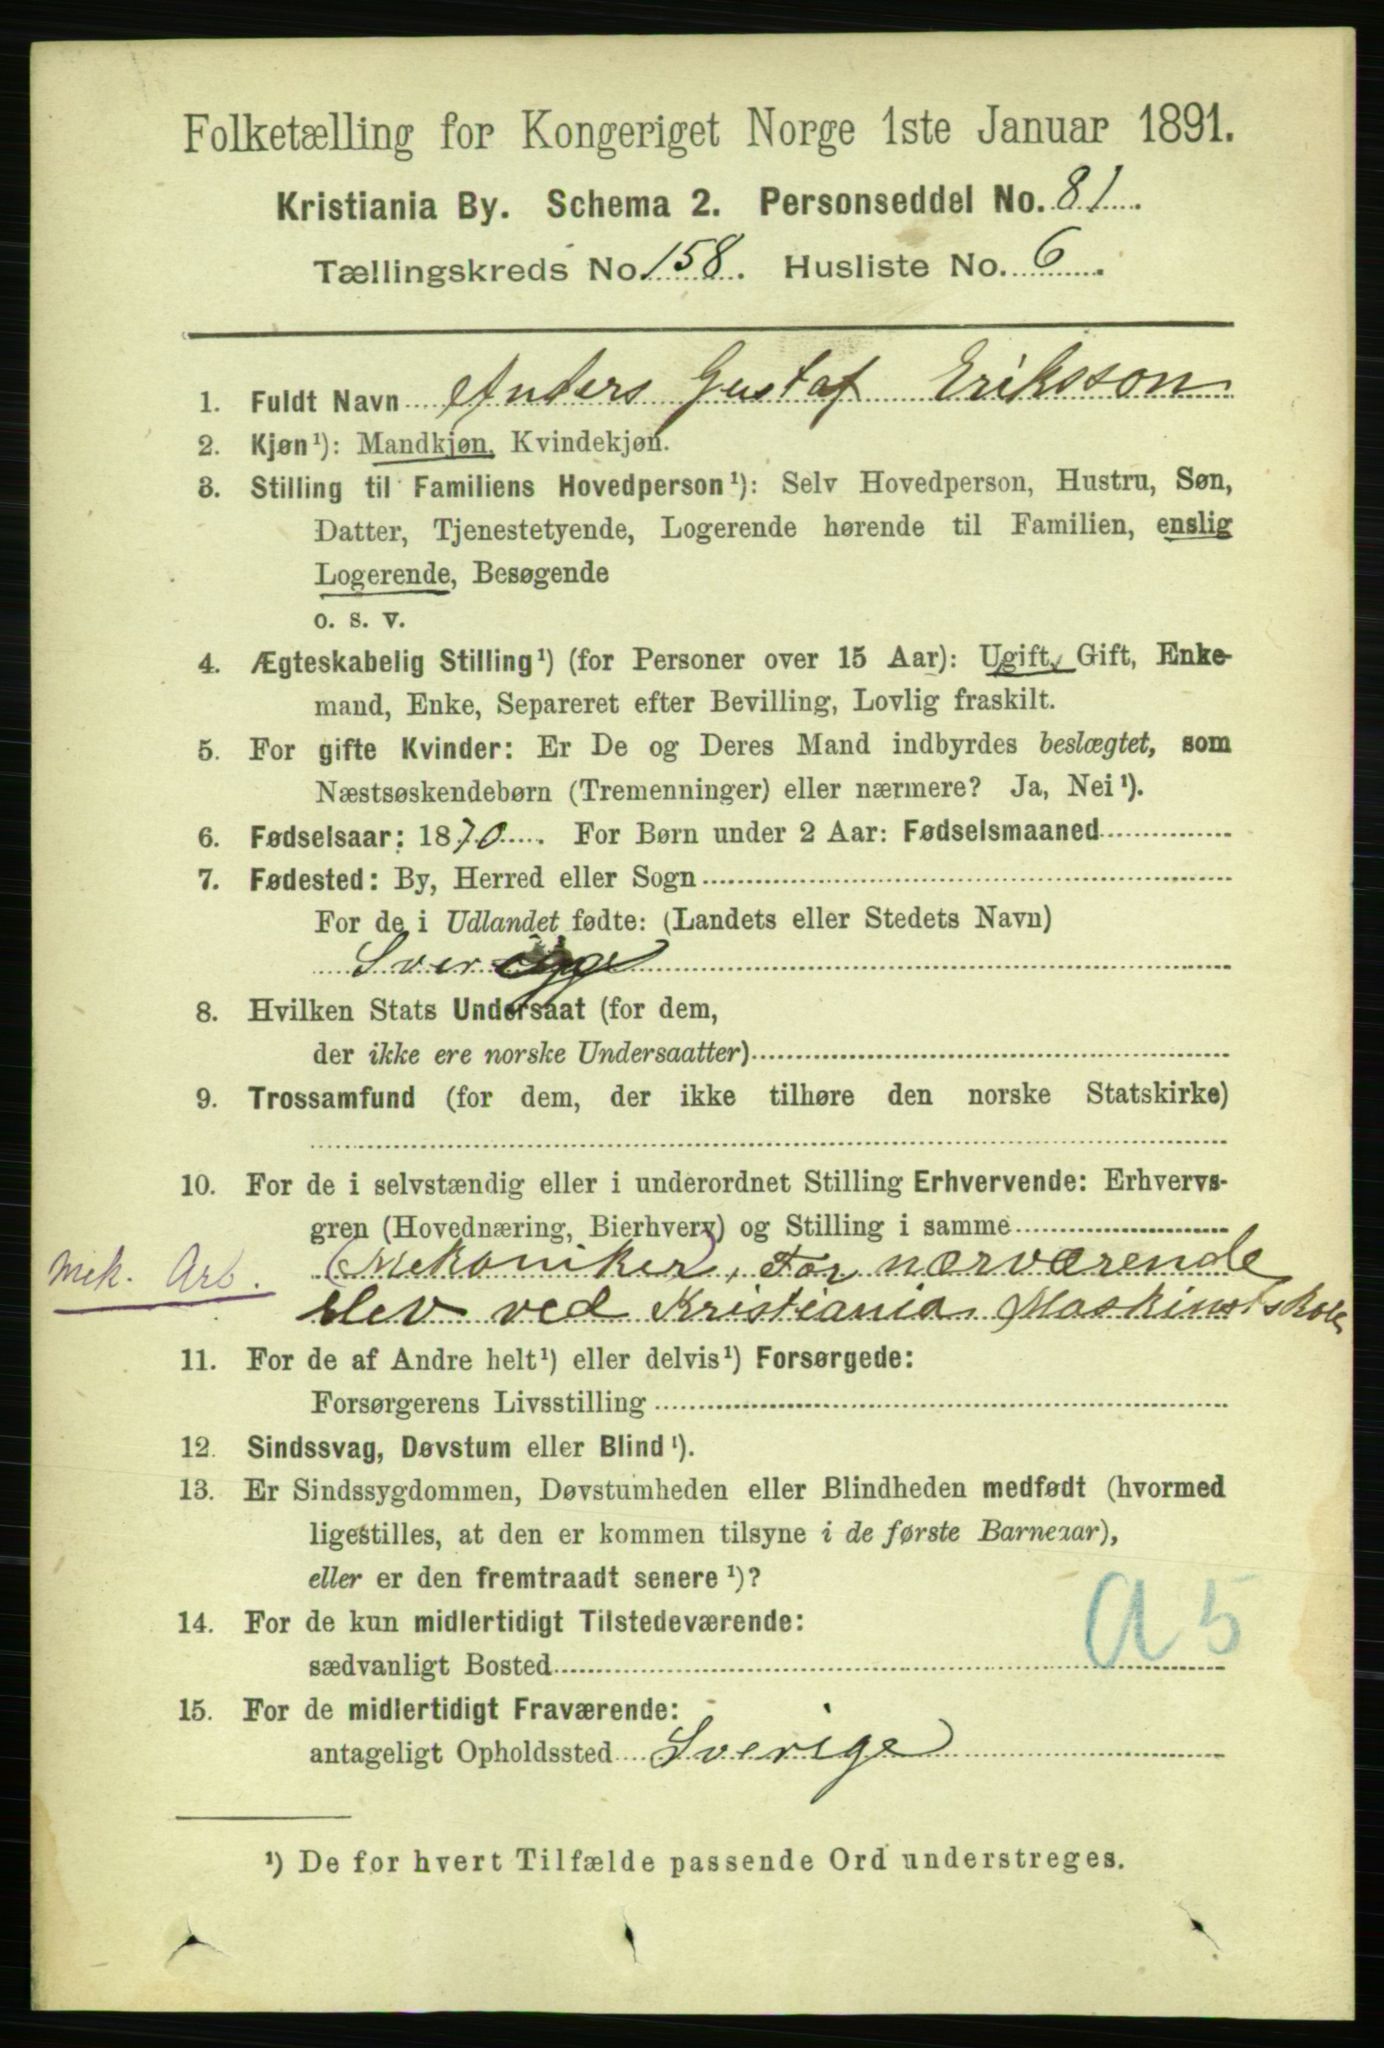 Folketælling for Kongeriget Norge 1ste Januar 1891.
Kristiania By. Schema 2. Personseddel No. 81.
Tællingskreds No. 158. Husliste No. 6.
1. Fuldt Navn Anders Gustaf Eriksson
2. Kjøn¹): Mandkjøn, Kvindekjøn.
3. Stilling til Familiens Hovedperson¹): Selv Hovedperson, Hustru, Søn,
Datter, Tjenestetyende, Logerende hørende til Familien, enslig
Logerende, Besøgende
o. s. v.
4. Ægteskabelig Stilling¹) (for Personer over 15 Aar): Ugift, Gift, Enke-
mand, Enke, Separeret efter Bevilling, Lovlig fraskilt.
5. For gifte Kvinder: Er De og Deres Mand indbyrdes beslægtet, som
Næstsøskendebørn (Tremenninger) eller nærmere? Ja, Nei¹).
6. Fødselsaar: 1870. For Børn under 2 Aar: Fødselsmaaned
7. Fødested: By, Herred eller Sogn
For de i Udlandet fødte: (Landets eller Stedets Navn)
Sverigge
8. Hvilken Stats Undersaat (for dem,
der ikke ere norske Undersaatter)
9. Trossamfund (for dem, der ikke tilhøre den norske Statskirke)
10. For de i selvstændig eller i underordnet Stilling Erhvervende: Erhvervs-
gren (Hovednæring, Bierhverv) og Stilling i samme
Mek. Arb. (Mekaniker), For nærværende
elev ved Kristiania Maskinistskole
11. For de af Andre helt¹) eller delvis¹) Forsørgede:
Forsørgerens Livsstilling
12. Sindssvag, Døvstum eller Blind¹).
13. Er Sindssygdommen, Døvstumheden eller Blindheden medfødt (hvormed
ligestilles, at den er kommen tilsyne i de første Barneaar),
eller er den fremtraadt senere¹)?
14. For de kun midlertidigt Tilstedeværende:
sædvanligt Bosted
a 5
15. For de midlertidigt Fraværende:
antageligt Opholdssted Sverige
¹) De for hvert Tilfælde passende Ord understreges.